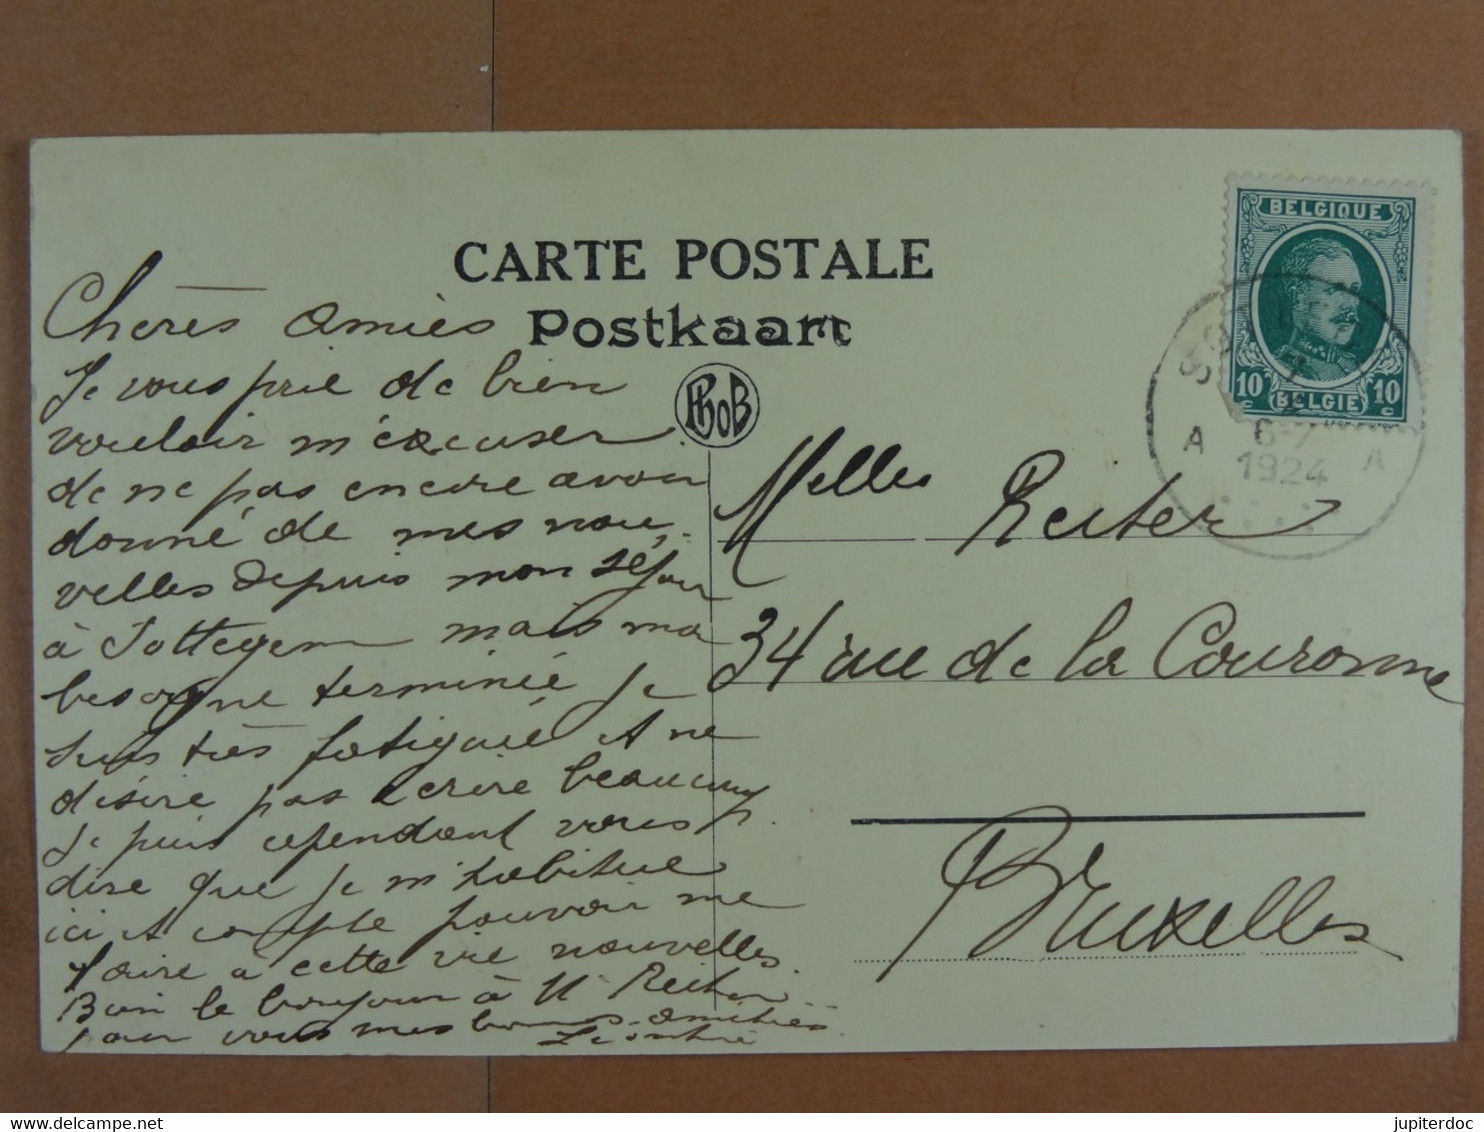 CARTE POSTALE
Postkaart
PhoB
BELGIQUE
10 c
10 c
BELGIE
A 6-7 A
1924
Chères amies
Je vous prie de bien
vouloir m'excuser
de ne pas encore avoir
donné de mes nou
velles depuis mon séjour
à Sottegem mais ma
besogne terminée je
suis très fatiguée et ne
désire pas écrire beaucoup.
Je puis cependant vous
dire que je m'habitue
ici et compte pouvoir me
faire à cette vie nouvelles.
Bien le bonjour à Mr Reuter
pour vous mes bonnes amitiés
Melles Reuter
34 rue de la Couronne
Bruxelles
jupiterdoc